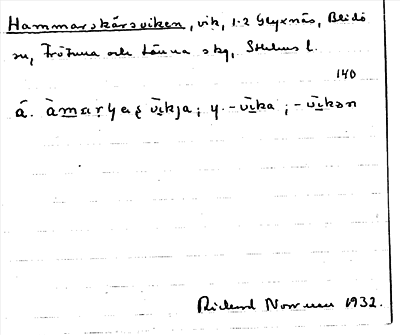 Hammarskärsviken, vik, 1.2 Glyxnäs, Blidö
sn, Frötuna och Länna skg, Sthlms l.
140
á. àmarʃeʂ vī̀kja; y. -vī̀ka; -vī̀kən
Rickard Norrman 1932.